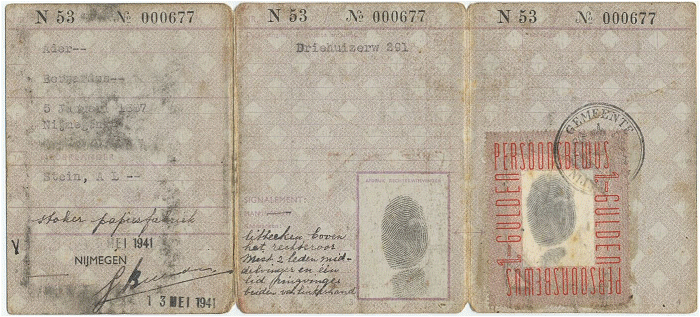 N 53 № 000677
Ader--
Bernardus--
5 Januari 1887
Nijmegen
Stein, A L --
stoker papierfabriek
MEI 1941
NIJMEGEN
13 MEI 1941
N 53 № 000677
Driehuizerw 291
SIGNALEMENT:
litteeken boven
het rechteroor
Mist 2 leden mid-
delvinger en een
lid pinkvinger
beiden van linkerhand
N 53 № 000677
GEMEENTE
PERSOONSBEWIJS
1-GULDEN
1-GULDEN
PERSOONSBEWIJS